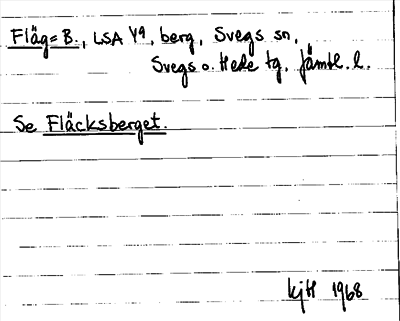 Fläg=B., LSA Y9, berg, Svegs sn,
Svegs o. Hede tg. Jämtl. l.
Se Fläcksberget.
kjH 1968